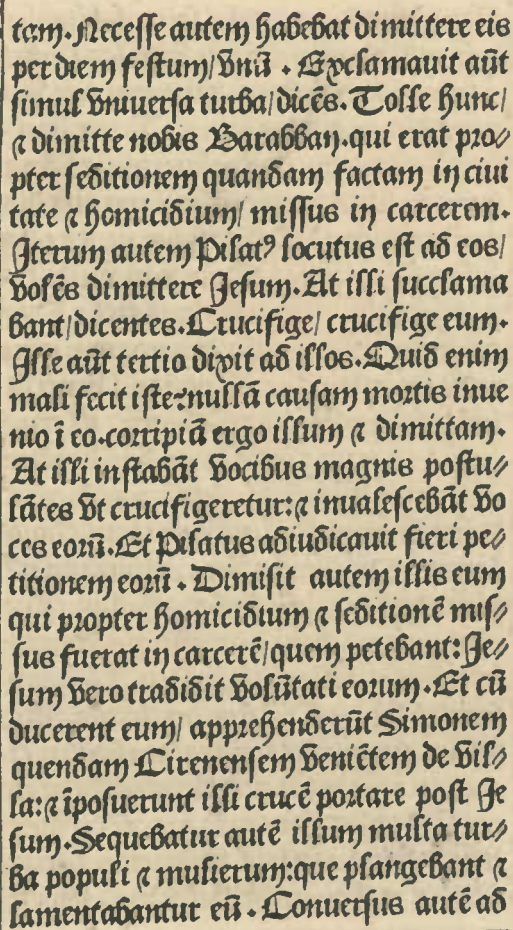 tam. Necesse autem habebat dimittere eis
per diem festum/ vnū. Exclamauit aūt
simul vniuersa turba/ dicēs. Tolle hunc/
⁊ dimitte nobis Barabban. qui erat pro⸗
pter seditionem quandam factam in ciui
tate ⁊ homicidium/ missus in carcerem.
Iterum autem Pilatꝰ locutus est ad eos/
volēs dimittere Jesum. At illi succlama
bant/ dicentes. Crucifige/ crucifige eum.
Ille aūt tertio dixit ad illos. Quid enim
mali fecit iste? nullā causam mortis inue
nio ī eo. corripiā ergo illum ⁊ dimittam.
At illi instabāt vocibus magnis postu⸗
lātes vt crucifigeretur: ⁊ inualescebāt vo
ces eorū. Et Pilatus adiudicauit fieri pe⸗
titionem eorū. Dimisit autem illis eum
qui propter homicidium ⁊ seditionē mis⸗
sus fuerat in carcerē/ quem petebant: Je⸗
sum vero tradidit volūtati eorum. Et cū
ducerent eum/ apprehenderūt Simonem
quendam Cirenensem veniētem de vil⸗
la: ⁊ īposuerunt illi crucē portare post Je
sum. Sequebatur autē illum multa tur⸗
ba populi ⁊ mulierum: que plangebant ⁊
lamentabantur eū. Conuersus autē ad